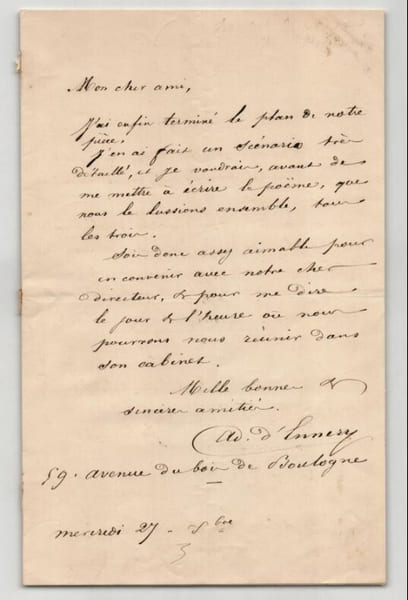 Mon cher ami,
J'ai enfin terminé le plan de notre
pièce.
J'en ai fait un scénario très
détaillé, et je voudrais, avant de
me mettre à écrire le poëme, que
nous le lussions ensemble, tous
les trois.
Sois donc assez aimable pour
en convenir avec notre cher
directeur, & pour me dire
le jour & l'heure où nous
pourrons nous réunir dans
son cabinet.
Mille bonnes &
sincères amitiés.
Ad. d'Ennery
59. avenue du bois de Boulogne
mercredi 27 -